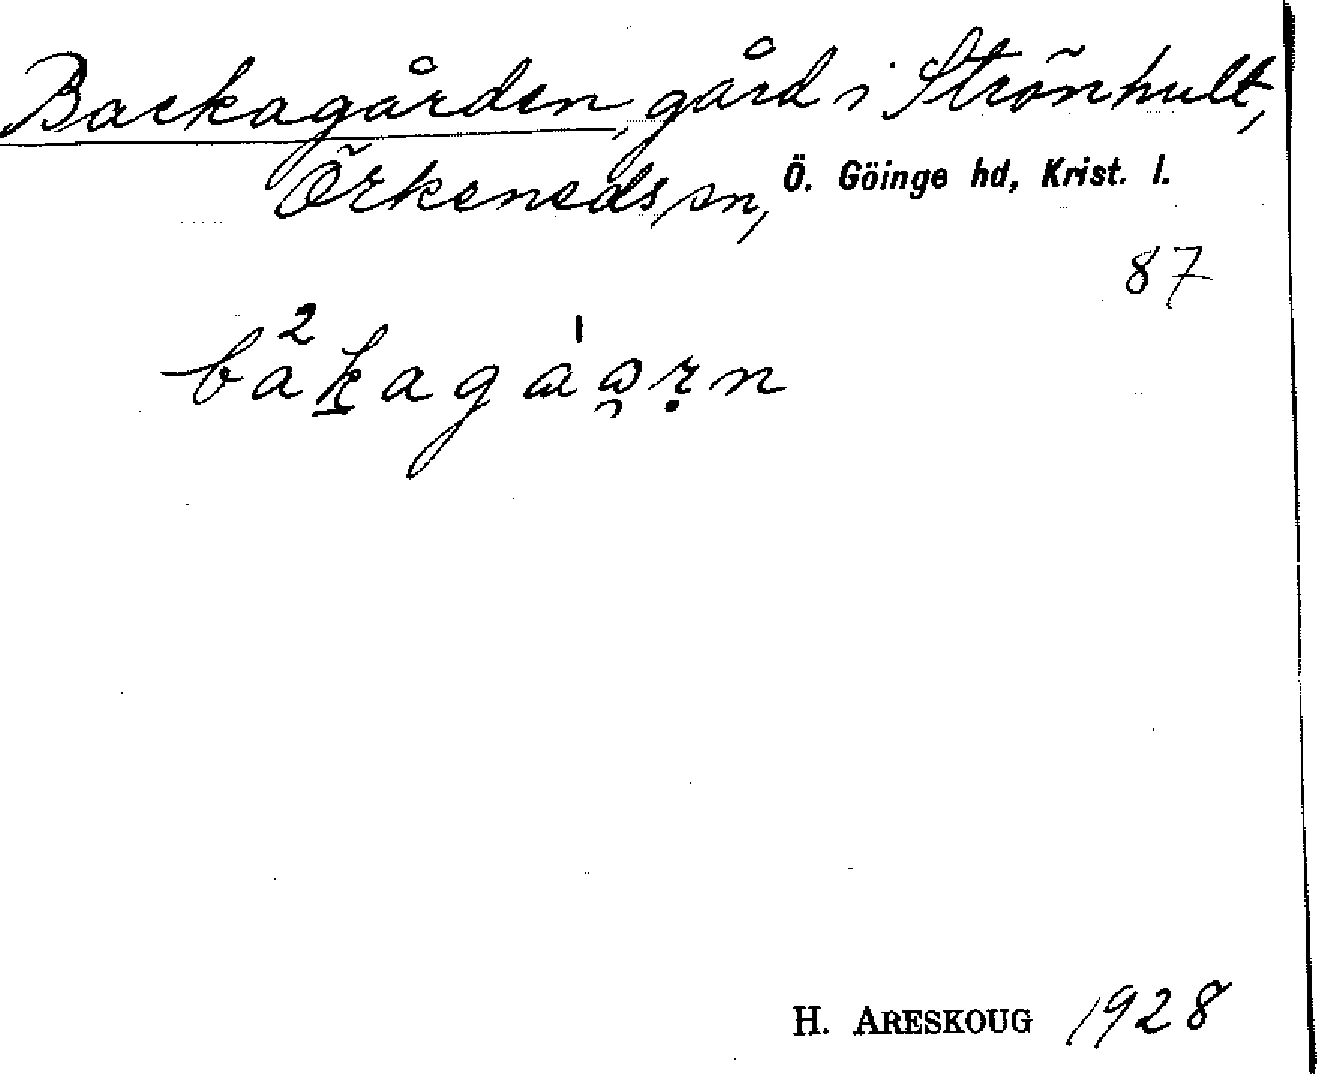 Backagården, gård i Strönhult,
Örkeneds sn, Ö. Göinge hd, Krist. l.
87
H. ARESKOUG 1928